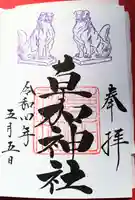 奉拝
苴木神社
令和四年
五月五日